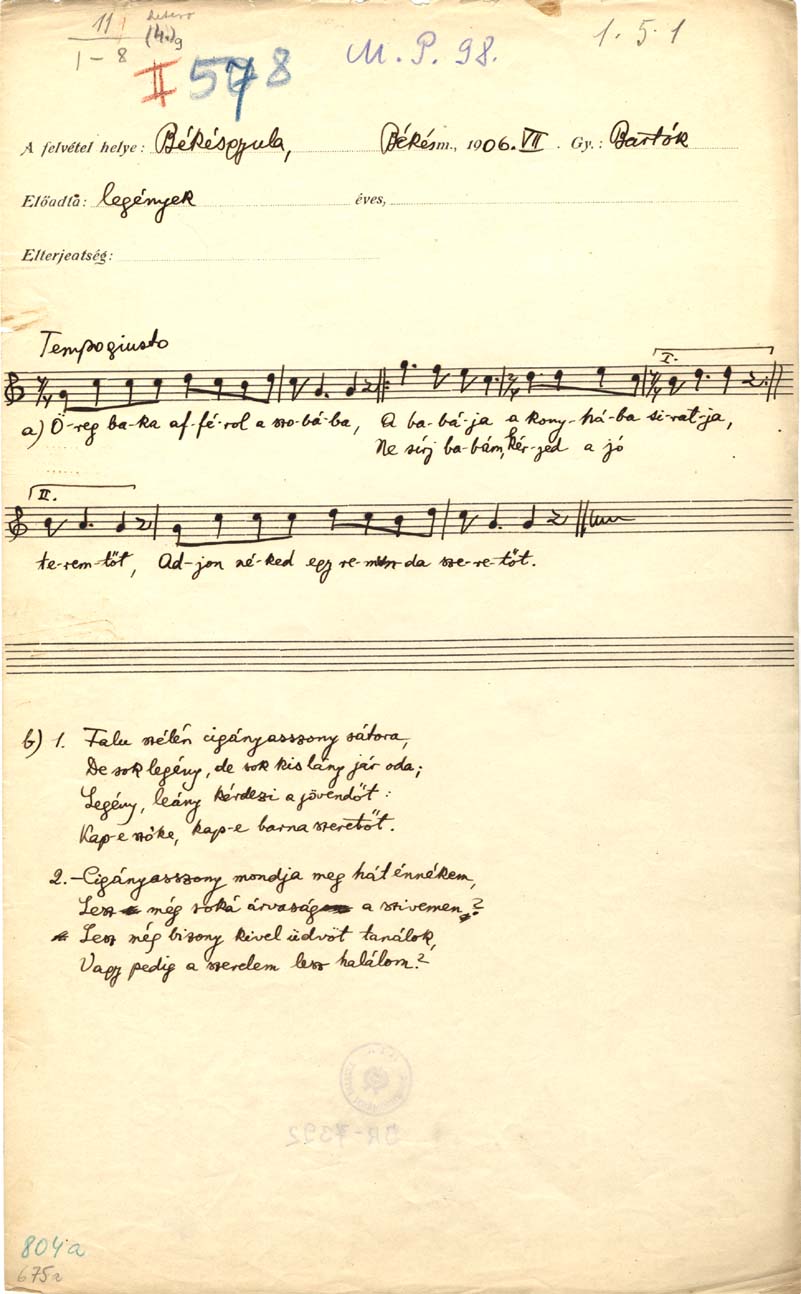 11
1 – 8
(4.)9
II 578
M. P. 98.
1. 5. 1
A felvétel helye: Békésgyula, Békésm., 1906. VII. Gy.: Bartók
Előadta: legények éves,
Elterjeatség:
Tempo giusto
I.
a) Ö-reg ba-ka af-fé-rol a szo-bá-ba, A ba-bá-ja a kony-há-ba si-rat-ja,
Ne sírj ba-bám, kér-jed a jó
II.
te-rem-tőt, Ad-jon né-ked egy re-mun-da sze-re-tőt.
b) 1. Falu szélén cigányasszony sátora,
De sok legény, de sok kis lány jár oda;
Legény, leány kérdezi a jövendőt:
Kap-e szőke, kap-e barna szeretőt.
2. – Cigányasszony mondja meg hát énnékem,
Lesz még soká árvaság a szivemen?
Lesz még bizony kivel üdvöt tanálok,
Vagy pedig a szerelem lesz halálom?
BR-7392
804a
675a